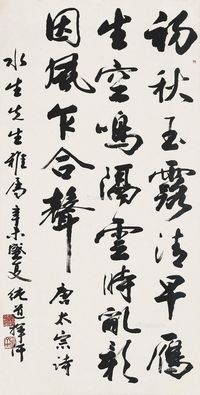 初秋玉露清早雁
出空鳴隔雲時亂影
因風乍含聲 唐太宗詩
水生先生雅屬 辛未盛夏 純道揮汗